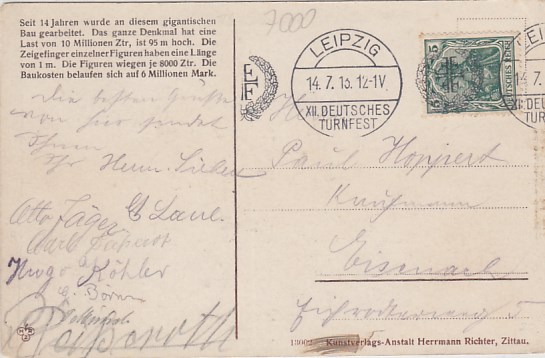 Seit 14 Jahren wurde an diesem gigantischen
Bau gearbeitet. Das ganze Denkmal hat eine
Last von 10 Millionen Ztr, ist 95 m hoch. Die
Zeigefinger einzelner Figuren haben eine Länge
von 1 m. Die Figuren wiegen je 8000 Ztr. Die
Baukosten belaufen sich auf 6 Millionen Mark.
7000
LEIPZIG
14. 7. 13. 12-1V.
XII. DEUTSCHES
TURNFEST
5 5
DEUTSCHES REICH
LEI
14. 7
XII. DEUT
TUR
Die besten Grüße
von hier sendet
Ihnen
Ihr Herm.
Otto Jäger
Hugo Köhler
Paul Hoppert
Kaufmann
Eisenach
13002 Kunstverlags-Anstalt Herrmann Richter, Zittau.